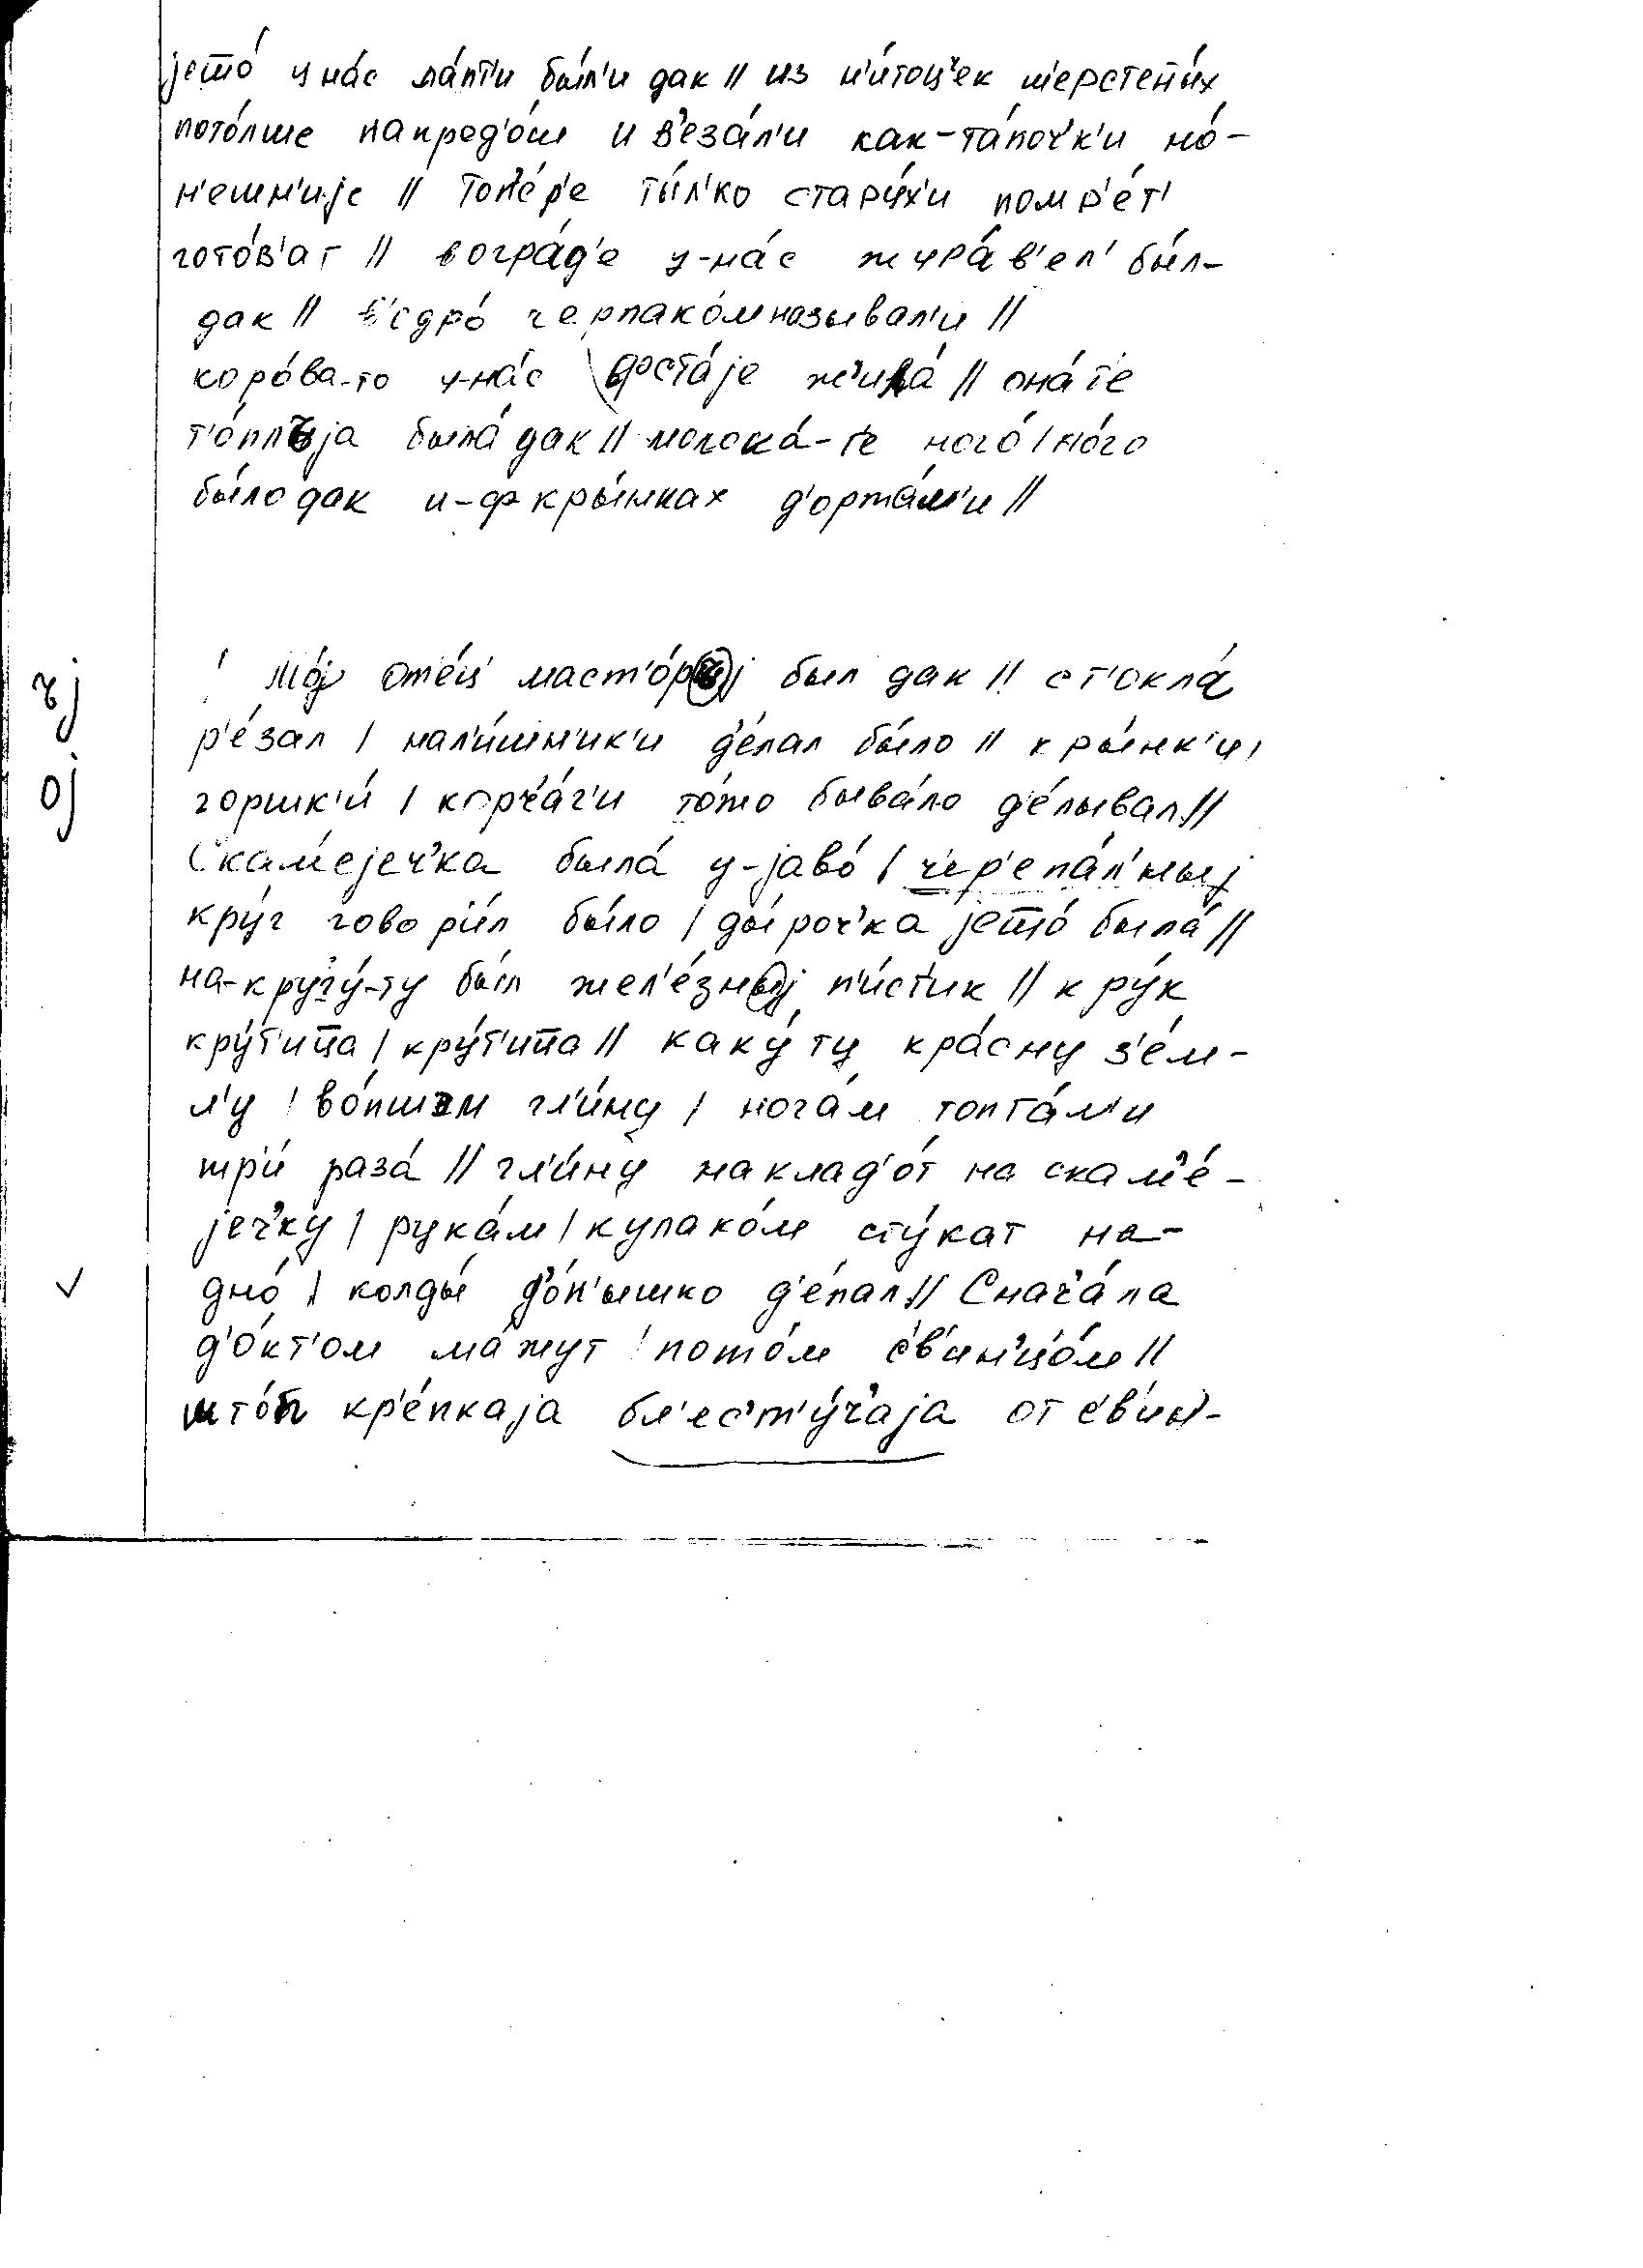 јешо́ у на́с ла́пт'и бы́л'и дак // из н'и́тоц'ек шерстены́х
пото́лше напрјад'о́ш и в'еза́л'и как-та́поч'к'и но́-
н'ешн'ије // Топ'е́р'е ты́л'ко стару́х'и помр'е́т'
гото́в'ат // вогра́д'е у-на́с жура́в'ел' бы́л-
дак // в'едро́ черпако́м называл'и //
коро́ва-то у-на́с достаје жила́ // она́ т'е
т'о́плъја была́ дак // молока́-т'е ного́ / но́го
бы́ло дак и-ф кры́нках д'оржа́л'и //
Мо́ј оте́ц' маст'о́ръј был дак // ст'окла́
ъј
р'е́зал / нал'и́шн'ик'и д'е́лал бы́ло // кры́нк'и,
ој
горшк'и́ / корч'а́г'и то́жо быва́ло д'е́лывал //
Скам'ејеч'ка была́ у-јаво́ / ч'ер'епа́л'ныј
кру́г говор'и́л бы́ло / ды́роч'ка јешо́ была́ //
на-кругу́-ту бы́л жел'е́зныј п'и́ст'ик // кру́к
кру́т'ица / кру́т'ица // каку́ ту кра́сну з'е́м-
л'у / во́пшэм гл'и́ну / нога́м топта́л'и
тр'и́ раза́ // гл'и́ну наклад'о́т на скам'е́-
јеч'ку / рука́м / кулако́м сту́кат на-
дно́ / колды́ до́н'ышко д'е́лал // Снач'а́ла
д'о́кт'ом ма́жут / пото́м с'в'ин'цо́м //
што́п кр'е́пкаја бл'ес'т'у́ч'аја от с'в'ин-